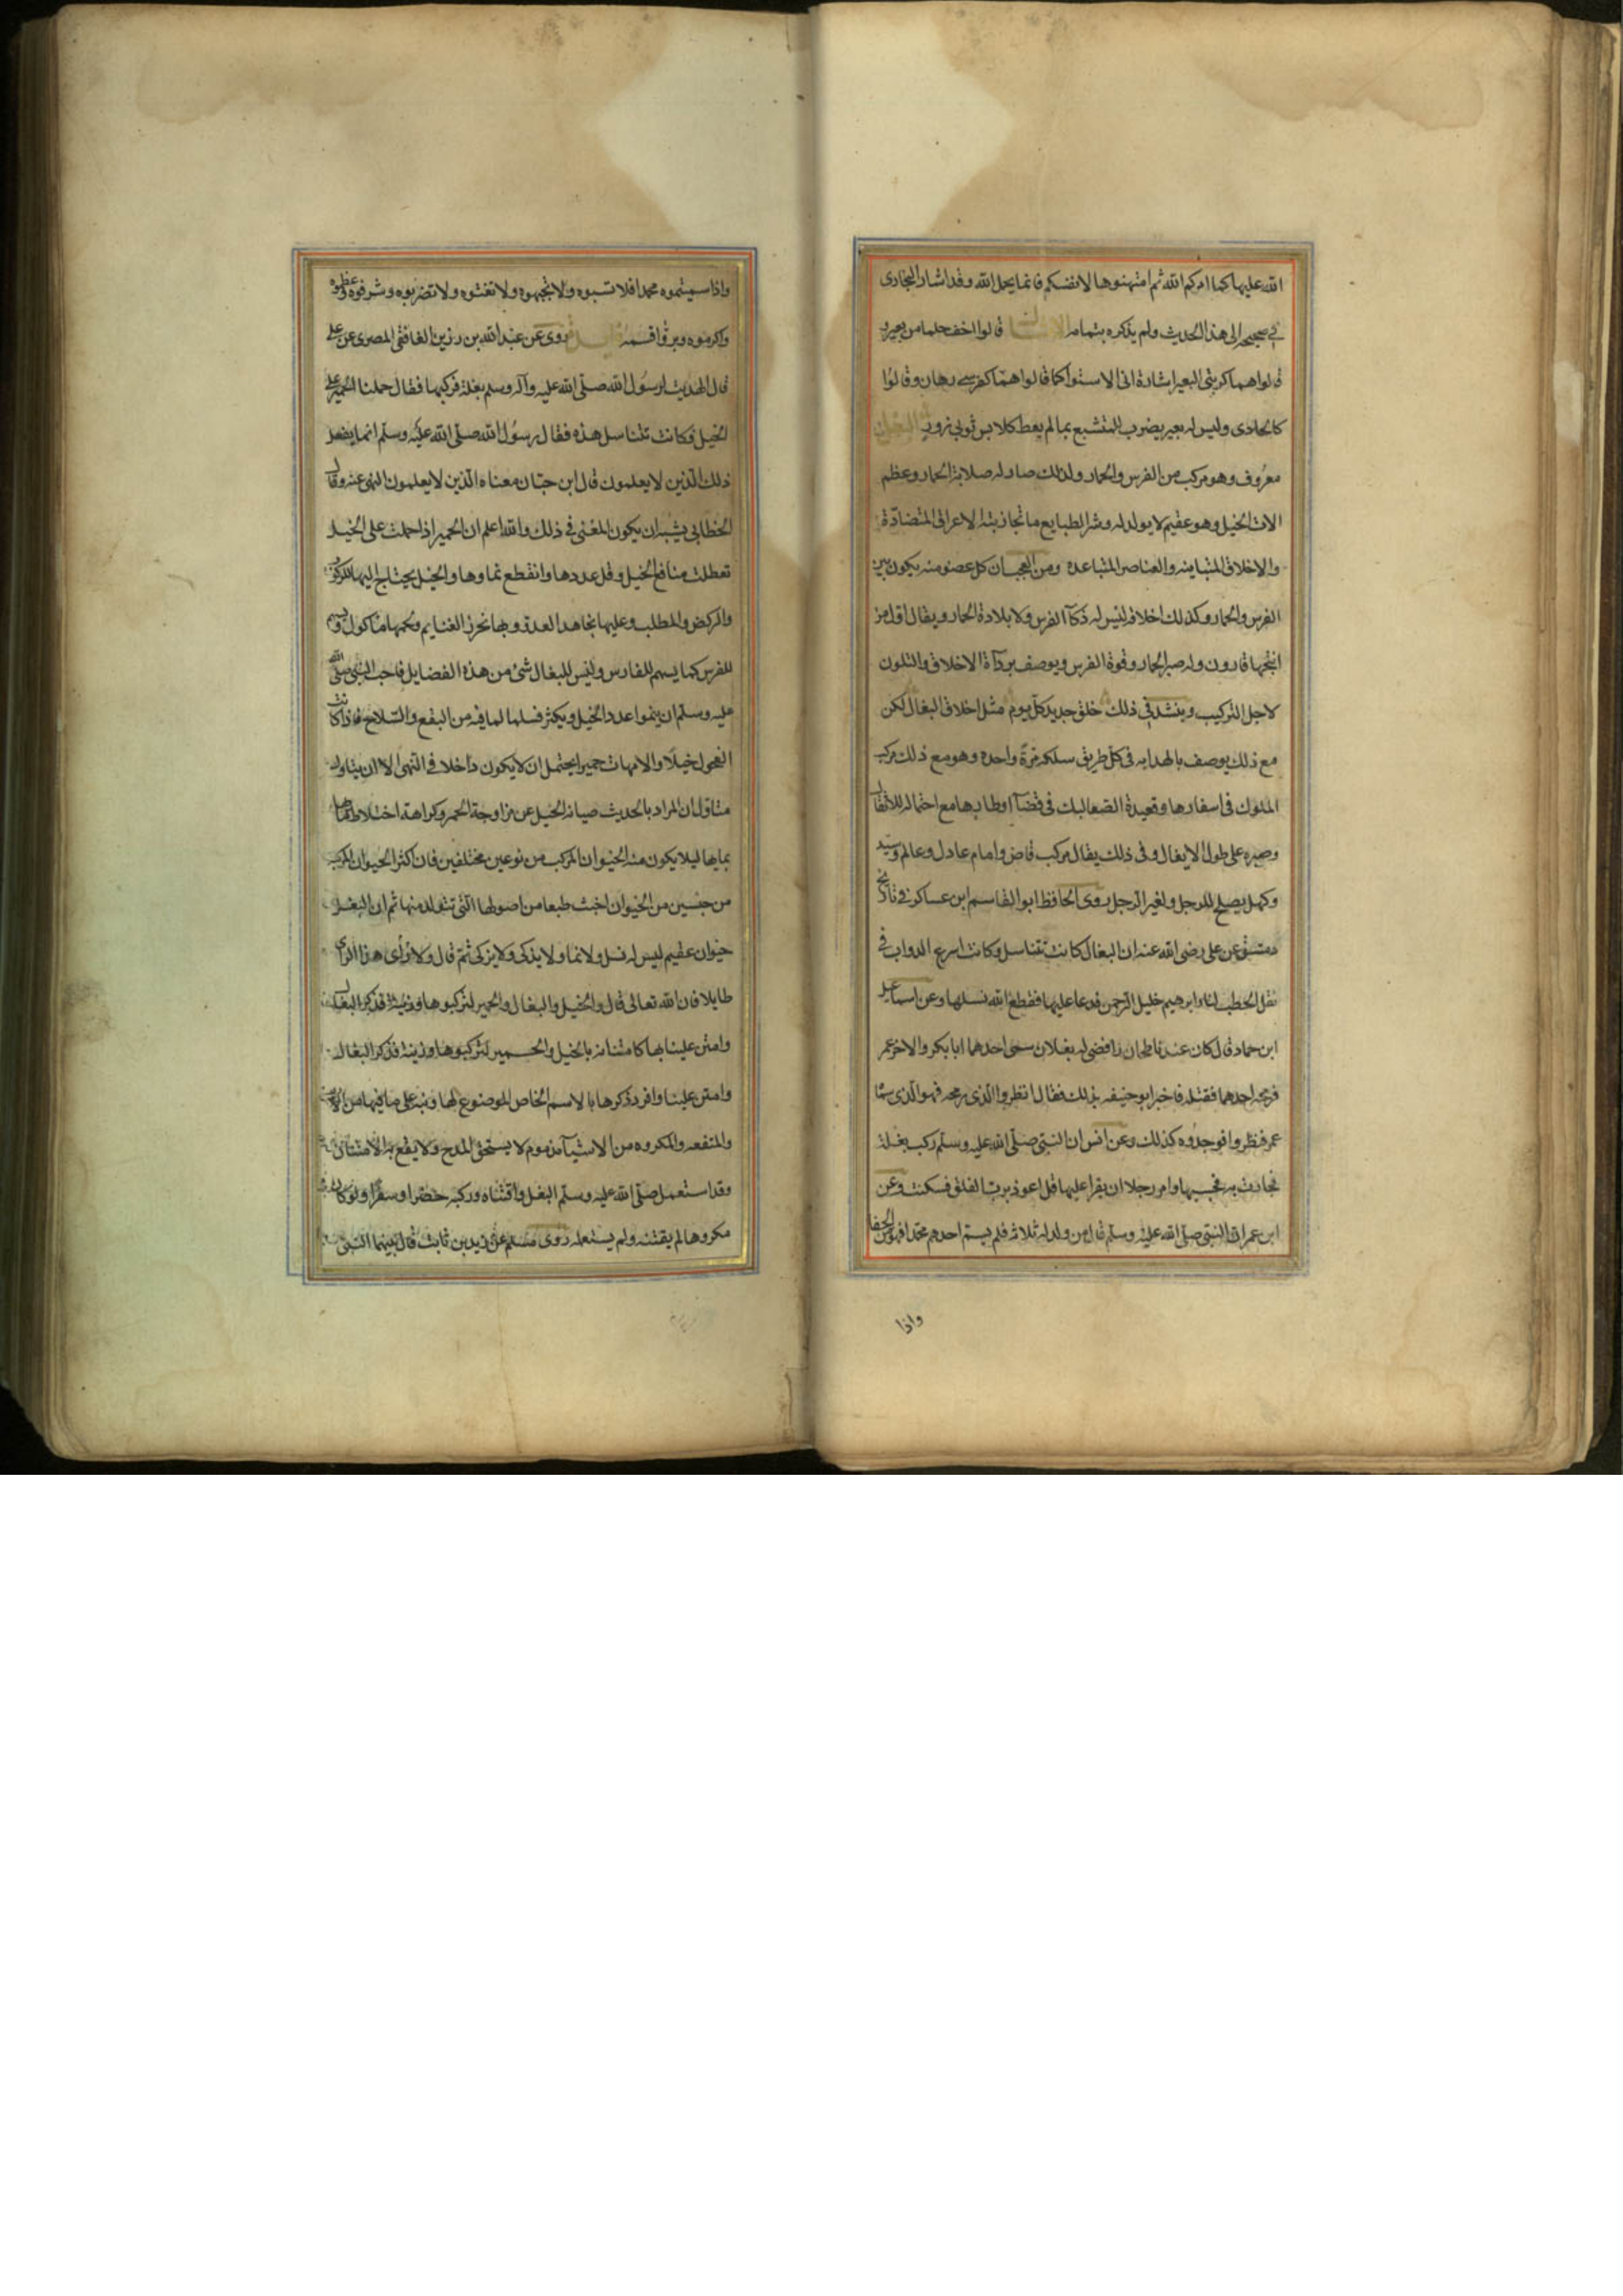 الله عليها كما امركم الله ثم امتهنوها لانفسكم فانما يحمل الله وقد اشار البخارى
في صحيحه الى هذا الحديث ولم يذكره بتمامه الامثال قالوا اخف حلما من بعير و
قالوا هما كركبتى البعير اشارة الى الاستواء كما قالوا هما كفرسى رهان وقالوا
كالحادى وليس له بعير يضرب للمتشبع بما لم يعط كلابس ثوبى زور البغل
معروف وهو مركب من الفرس والحمار ولذلك صار له صلابة الحمار وعظم
الات الخيل وهو عقيم لا يولد له وشر الطبايع ما تجاذبته الاعراق المتضادة
والاخلاق المتباينه والعناصر المتباعده ومن العجب ان كل عضو منه يكون بين
الفرس والحمار وكذلك اخلاقه ليس له ذكآ الفرس ولا بلادة الحمار ويقال اول من
انتجها قارون وله صبر الحمار وقوة الفرس ويوصف برداة الاخلاق والتلون
لاجل التركيب وينشد في ذلك خلق جديد كل يوم مثل اخلاق البغال لكن
مع ذلك يوصف بالهدايه فى كل طريق سلكه مرة واحده وهو مع ذلك مركب
الملوك فى اسفارها وقعيدة الصعاليك فى قضآ اوطارها مع احتماله للاثقال
وصبره على طول الايغال وفى ذلك يقال مركب قاض وامام عادل وعالم وسيد
وكهل يصلح للرجل ولغير الرجل روى الحافظ ابو القاسم ابن عساكر في تاريخ
دمشق عن على رضى الله عنه ان البغال كانت تتناسل وكانت اسرع الدواب في
نقل الحطب لنار ابرهيم خليل الرحمن فدعا عليها فقطع الله نسلها وعن اسماعيل
ابن حماد قال كان عندنا طحان رافضى له بغلان سمى احدهما ابا بكر والاخر عمر
فرمحه احدهما فقتله فاخبر ابو حنيفه بذلك فقال انظروا الذى رمحه فهو الذى سماه
عمر فنظروا فوجدوه كذلك وعن انس ان النبى صلى الله عليه وسلم ركب بغلة
فحادت به فحبسها وامر رجلا ان يقرا عليها قل اعوذ برب الفلق فسكنت وعن
ابن عمر ان النبى صلى الله عليه وسلم قال من ولد له ثلاثه فلم يسم احدهم محمدا فهو من الجفا
واذا
واذا سميتموه محمدا فلا تسبوه ولا تجبهوه ولا تعنتوه ولا تضربوه وشرفوه وعظموه
واكرموه وبروا قسمه روى عن عبد الله بن رزين الغافقى المصرى عن على
قال اهديت لرسول الله صلى الله عليه وآله وسلم بغلة فركبها فقال حملنا الحمير على
الخيل فكانت تتناسل هذه فقال رسول الله صلى الله عليه وسلم انما يفعل
ذلك الذين لا يعلمون قال ابن حبان معناه الذين لا يعلمون النهى عنه وقال
الخطابى يشبه ان يكون المعنى في ذلك والله اعلم ان الحمير اذا حملت على الخيل
تعطلت منافع الخيل وقل عددها وانقطع نماوها والخيل يحتاج اليها للركوب
والركض والطلب وعليها يجاهد العدو وبها تحرز الغنايم ولحمها ماكول ويسهم
للفرس كما يسهم للفارس وليس للبغال شئ من هذه الفضايل فاحب النبى صلى الله
عليه وسلم ان ينموا عدد الخيل ويكثر نسلها لما فيه من النفع والسلاح فاذا كانت
الفحول خيلا والامهات حميرا يحتمل ان لا يكون داخلا في النهى الا ان يتاول
متاول ان المراد بالحديث صيانة الخيل عن مزاوجة الحمر وكراهة اختلاط مائها
بمايها ليلا يكون منه الحيوان المركب من نوعين مختلفين فان اكثر الحيوان المركب
من جنسين من الحيوان اخبث طبعا من اصولها التى تتولد منها ثم ان البغل
حيوان عقيم ليس له نسل ولا نما ولا يذكى ولا يزكى ثم قال ولا ارى هذا الراى
طايلا فان الله تعالى قال والخيل والبغال والحمير لتركبوها وزينة فذكر البغال
وامتن علينا بها كامتنانه بالخيل والحمير لتركبوها وزينة فذكر البغال
وامتن علينا وافرد ذكرها بالاسم الخاص الموضوع لها ونبه على ما فيها من
والمنفعه والمكروه من الاشيآ مذموم لا يستحق المدح ولا يقع به الامتنان
وقد استعمل صلى الله عليه وسلم البغل واقتناه وركبه حضرا وسفرا ولو كان
مكروها لم يقتنه ولم يستعمله روى مسلم عن زيد بن ثابت قال بينما النبى